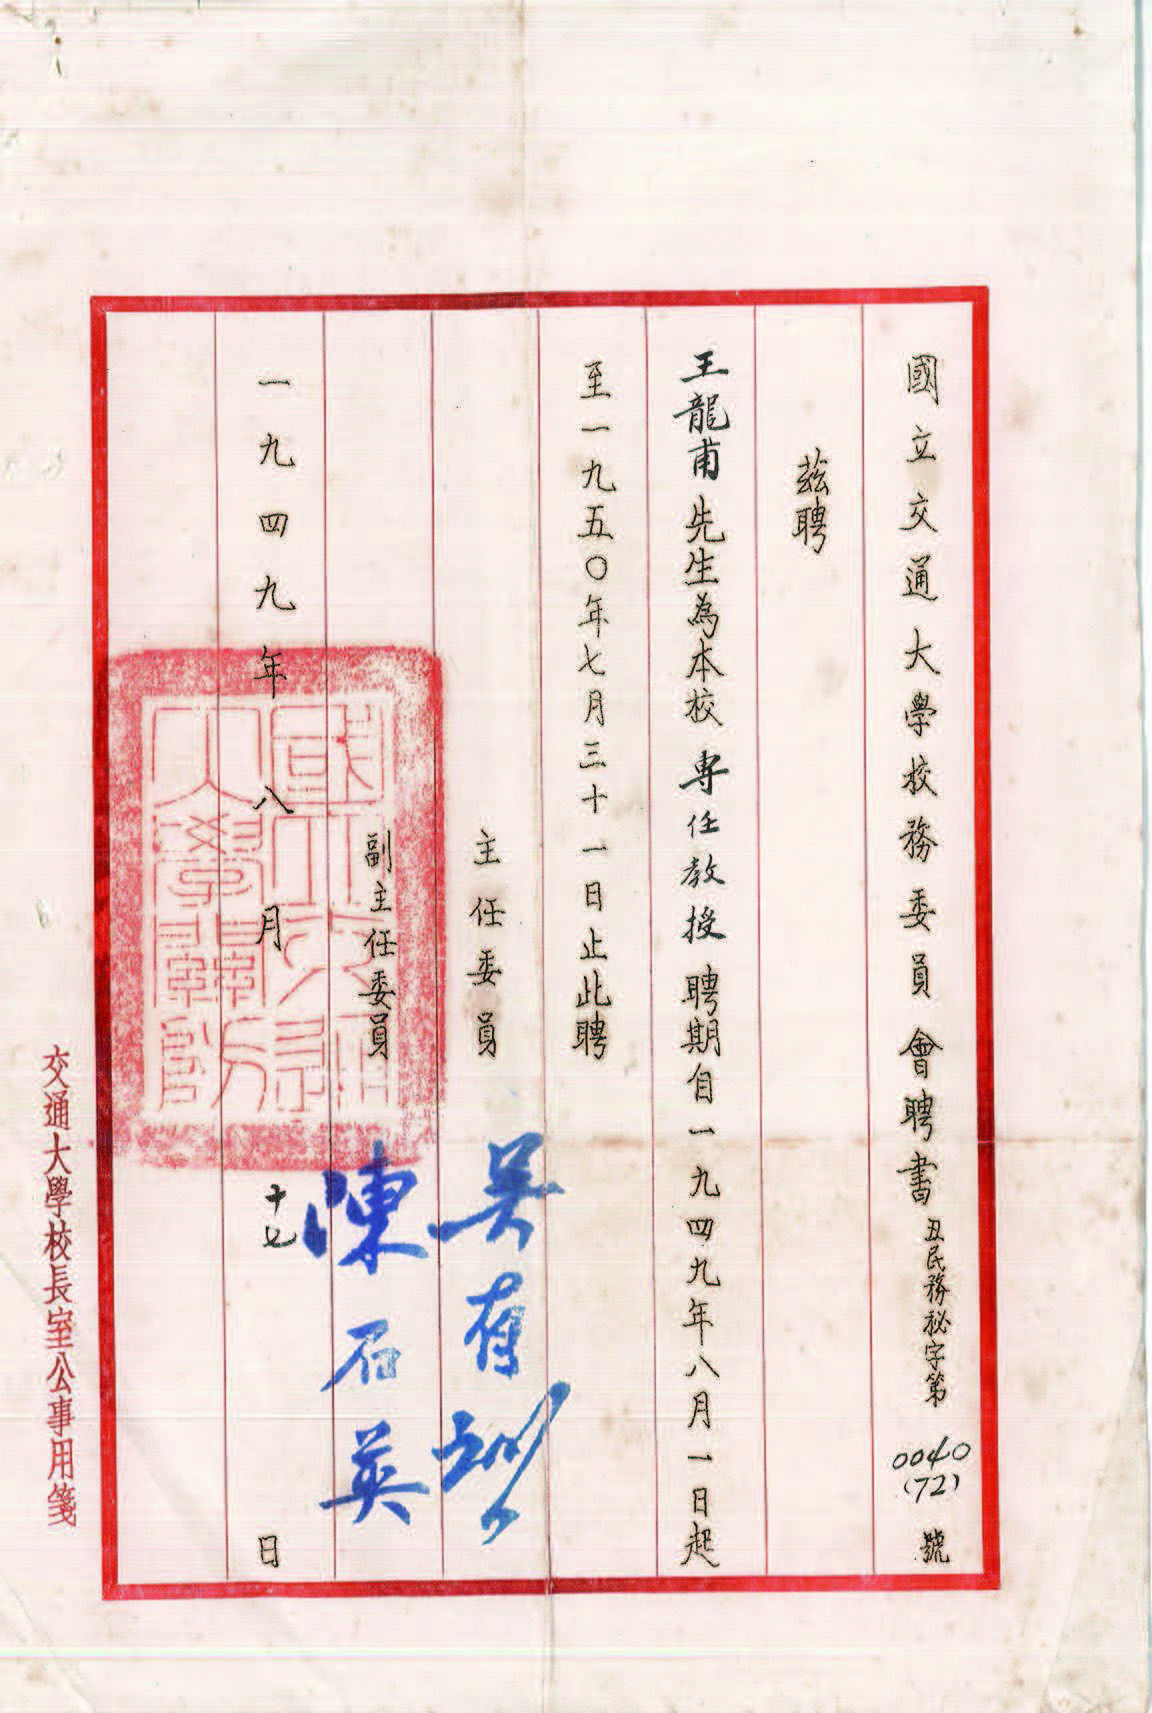 國立交通大學校務委員會聘書 丑民務秘字第0040(72)號
茲聘
王龍甫先生為本校專任教授聘期自一九四九年八月一日起
至一九五〇年七月三十一日止此聘
主任委員 吴有訓
副主任委員 陳石英
一九四九年八月十七日
交通大學校長室公事用箋